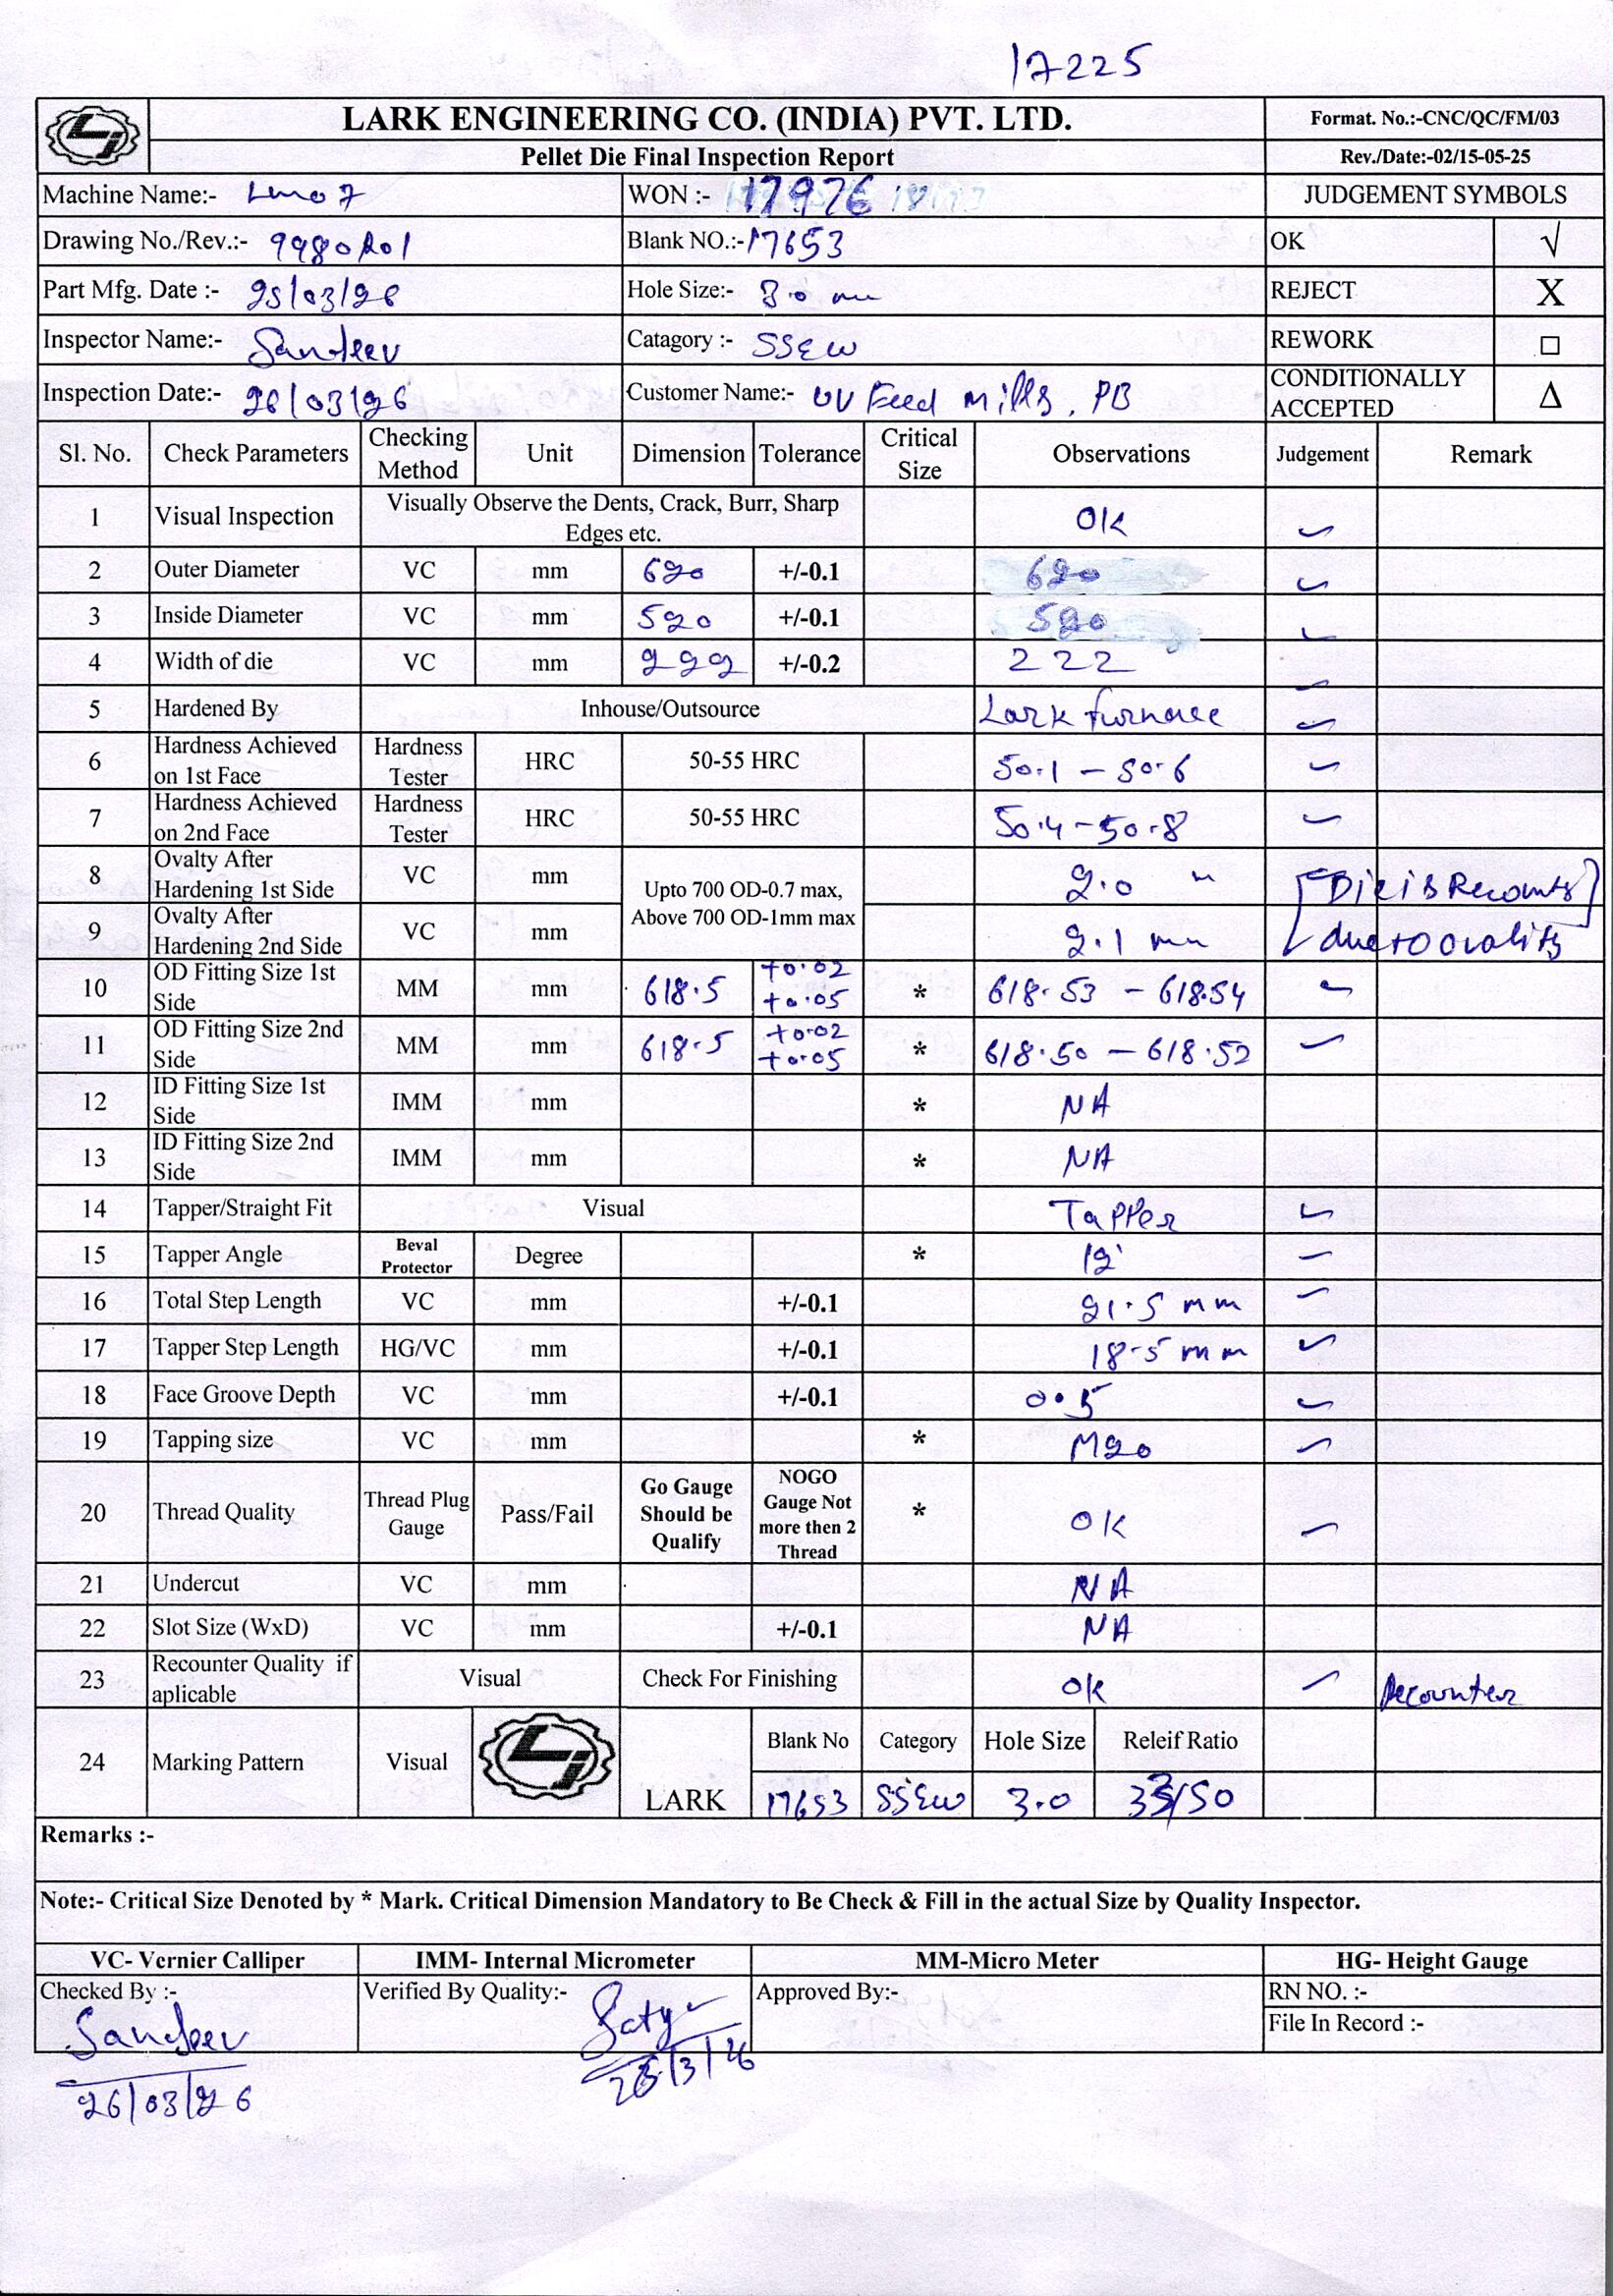 17225
LARK ENGINEERING CO. (INDIA) PVT. LTD.
Format. No.:-CNC/QC/FM/03
Pellet Die Final Inspection Report
Rev./Date:-02/15-05-25
Machine Name:- Lmo7
WON :- 17976
JUDGEMENT SYMBOLS
Drawing No./Rev.:- 9980R01
Blank NO.:- 17653
OK √
Part Mfg. Date :- 25/03/26
Hole Size:- 3.0 mm
REJECT X
Inspector Name:- Sandeev
Catagory :- SSEW
REWORK □
Inspection Date:- 26/03/26
Customer Name:- UV Feed Mills, PB
CONDITIONALLY ACCEPTED Δ
Sl. No. Check Parameters Checking Method Unit Dimension Tolerance Critical Size Observations Judgement Remark
1 Visual Inspection Visually Observe the Dents, Crack, Burr, Sharp Edges etc. OK ✓
2 Outer Diameter VC mm 620 +/-0.1 620 ✓
3 Inside Diameter VC mm 520 +/-0.1 520 ✓
4 Width of die VC mm 222 +/-0.2 222 ✓
5 Hardened By Inhouse/Outsource Lark furnace ✓
6 Hardness Achieved on 1st Face Hardness Tester HRC 50-55 HRC 50.1 - 50.6 ✓
7 Hardness Achieved on 2nd Face Hardness Tester HRC 50-55 HRC 50.4-50.8 ✓
8 Ovalty After Hardening 1st Side VC mm Upto 700 OD-0.7 max, Above 700 OD-1mm max 2.0 " Die is Recounts
9 Ovalty After Hardening 2nd Side VC mm 2.1 mm due to ovality
10 OD Fitting Size 1st Side MM mm 618.5 +0.02 +0.05 * 618.53 - 618.54 ✓
11 OD Fitting Size 2nd Side MM mm 618.5 +0.02 +0.05 * 618.50 - 618.52 ✓
12 ID Fitting Size 1st Side IMM mm * NA
13 ID Fitting Size 2nd Side IMM mm * NA
14 Tapper/Straight Fit Visual Tapper ✓
15 Tapper Angle Beval Protector Degree * 12' ✓
16 Total Step Length VC mm +/-0.1 21.5 mm ✓
17 Tapper Step Length HG/VC mm +/-0.1 18.5 mm ✓
18 Face Groove Depth VC mm +/-0.1 0.5 ✓
19 Tapping size VC mm * M20 ✓
20 Thread Quality Thread Plug Gauge Pass/Fail Go Gauge Should be Qualify NOGO Gauge Not more then 2 Thread * OK ✓
21 Undercut VC mm NA
22 Slot Size (WxD) VC mm +/-0.1 NA
23 Recounter Quality if aplicable Visual Check For Finishing ok ✓ Recounter
24 Marking Pattern Visual LARK Blank No Category Hole Size Releif Ratio
17653 SSEW 3.0 33/50
Remarks :-
Note:- Critical Size Denoted by * Mark. Critical Dimension Mandatory to Be Check & Fill in the actual Size by Quality Inspector.
VC- Vernier Calliper IMM- Internal Micrometer MM-Micro Meter HG- Height Gauge
Checked By :- Sandeev 26/03/26
Verified By Quality:- Satya 26/3/26
Approved By:-
RN NO. :-
File In Record :-